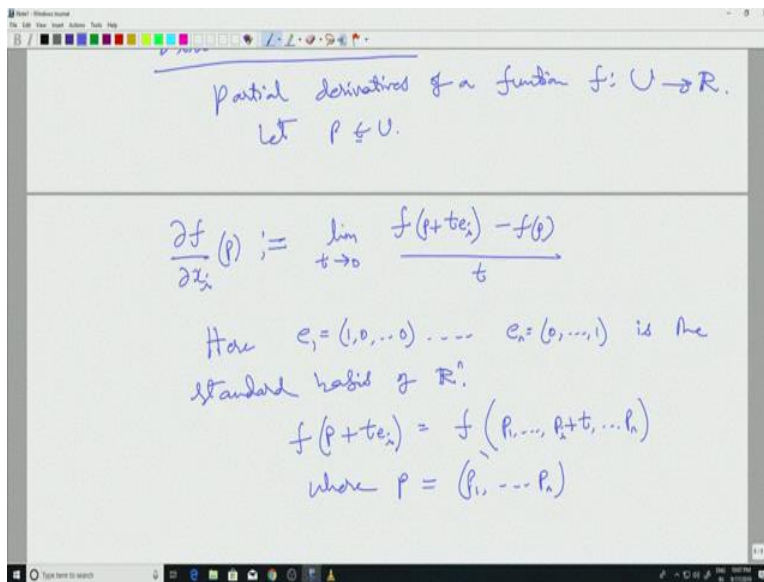 Note1 - Windows Journal
File Edit View Insert Actions Tools Help
B I
Partial derivatives of a function f: U → R.
Let p ∈ U.
∂f/∂x_i (p) := lim_{t→0} (f(p+te_i) - f(p))/t
Here e_1 = (1,0,..0) .... e_n = (0,...,1) is the
standard basis of R^n.
f(p+te_i) = f(p_1,..., p_i+t, ...p_n)
where p = (p_1, --- p_n)
Type here to search